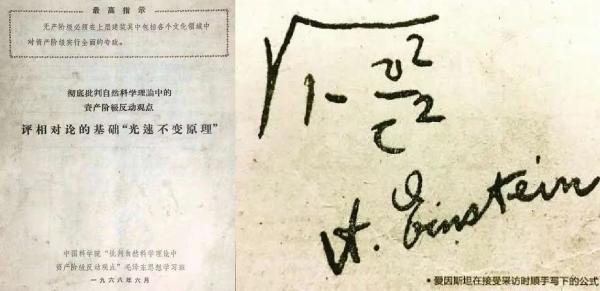 最高指示
无产阶级必须在上层建筑其中包括各个文化领域中
对资产阶级实行全面的专政。
彻底批判自然科学理论中的
资产阶级反动观点
评相对论的基础“光速不变原理”
中国科学院“批判自然科学理论中
资产阶级反动观点”毛泽东思想学习班
一九六八年六月
√1-v²/c²
A. Einstein
•爱因斯坦在接受采访时顺手写下的公式